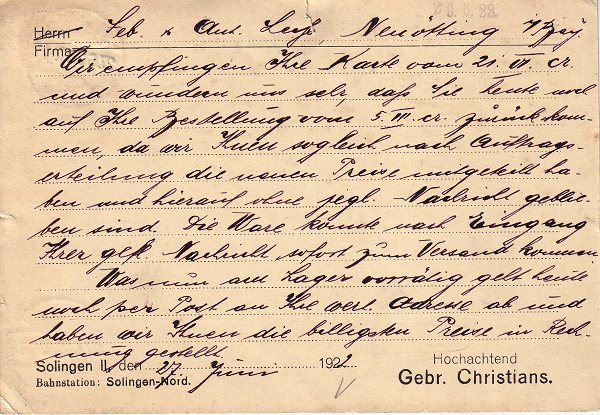 29.6.22
Herrn Seb. & Ant. Neuötting
Firma
Wir empfingen Ihre Karte vom 21. VI. cr.
und wundern uns sehr, daß Sie heute noch
auf Ihre Bestellung vom 5. III. cr. zurückkom-
men, da wir Ihnen sogleich nach Auftrags-
erteilung die neuen Preise mitgeteilt ha-
ben und hierauf ohne jegl. Nachricht geblie-
ben sind. Die Ware konnte nach Eingang
Ihrer gefl. Nachricht sofort zum Versand kommen.
Was nun am Lager vorrätig geht heute
noch per Post an Ihre wert. Adresse ab und
haben wir Ihnen die billigsten Preise in Rech-
nung gestellt.
Solingen II, den 27. Juni 1922
Bahnstation: Solingen-Nord.
Hochachtend
Gebr. Christians.